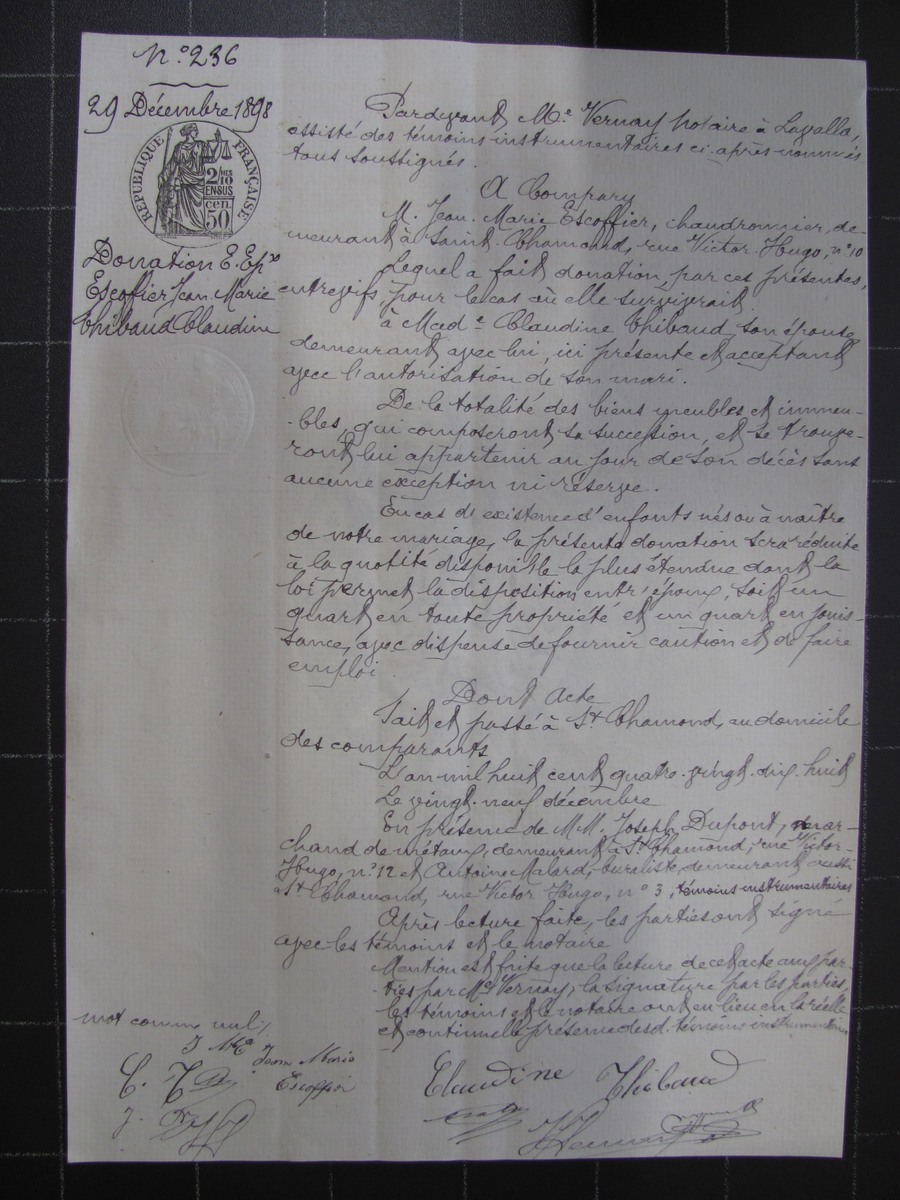 N.º 236
29 Décembre 1898
RÉPUBLIQUE FRANÇAISE
2/10 MES
EN SUS
cen.
50
Donation E. Epx
Escoffier Jean Marie
Thibaud Claudine
Pardevant Me Vernay notaire à Lavalla,
assisté des témoins instrumentaires ci-après nommés
tous soussignés.
A Comparu
M. Jean-Marie Escoffier, chaudronnier, de-
meurant à Saint-Chamond, rue Victor-Hugo, nº 10
Lequel a fait donation par ces présentes,
entrevifs, pour le cas où elle survivrait
à Made Claudine Thibaud son épouse
demeurant avec lui, ici présente et acceptant
avec l'autorisation de son mari.
De la totalité des biens meubles et immeu-
-bles, qui composeront sa succession, et se trouve-
ront lui appartenir au jour de son décès sans
aucune exception ni réserve.
En cas d'existence d'enfants nés ou à naître
de notre mariage, la présente donation sera réduite
à la quotité disponible la plus étendue dont la
loi permet la disposition entr'époux, soit un
quart en toute propriété et un quart en jouis-
sance, avec dispense de fournir caution et de faire
emploi
Dont Acte
Fait et passé à St Chamond, au domicile
des comparants
L'an mil huit cent quatre-vingt-dix-huit
Le vingt-neuf décembre
En présence de MM. Joseph Dupont, mar-
chand de métaux, demeurant à St Chamond, rue Victor-
Hugo, nº 12 et Antoine Malard, buraliste, demeurant aussi
à St Chamond, rue Victor Hugo, nº 3, témoins instrumentaires
Après lecture faite, les parties ont signé
avec les témoins et le notaire
Mention est faite que la lecture de cet acte aux par-
-ties par Me Vernay, la signature par les parties,
les témoins et le notaire ont eu lieu en la réelle
et continuelle présence desd. témoins instrumentaires
mot comme nul
J M E
Jean Marie
Escoffier
C. T
J. D
Claudine Thibaud
Vernay